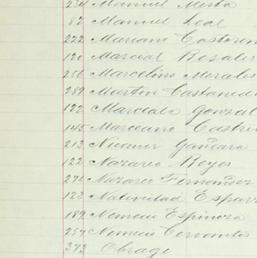 Manuel Mesta
82 Manuel Leal
222 Mariano Castoren
120 Marcial Rosales
256 Marcelino Morales
289 Martin Castaneda
192 Marcelo Gonzal
145 Marceano Castre
213 Nicanor Gandara
122 Nazareo Reyes
Nazareo Fernandez
123 Natividad Esparz
189 Nemecio Espinoza
257 Nemecio Cervantes
292 Obrage